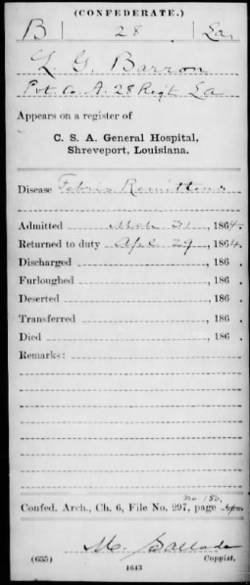 (CONFEDERATE.)
B 28 La.
L. G. Barron
Pvt Co. A. 28 Regt La
Appears on a register of
C. S. A. General Hospital,
Shreveport, Louisiana.
Disease Febris Remittens
Admitted Mch 31, 1864.
Returned to duty Apl 29, 1864.
Discharged , 186 .
Furloughed , 186 .
Deserted , 186 .
Transferred , 186 .
Died , 186 .
Remarks:
no 150,
Confed. Arch., Ch. 6, File No. 297, page
M.
(635) Copyist.
1643